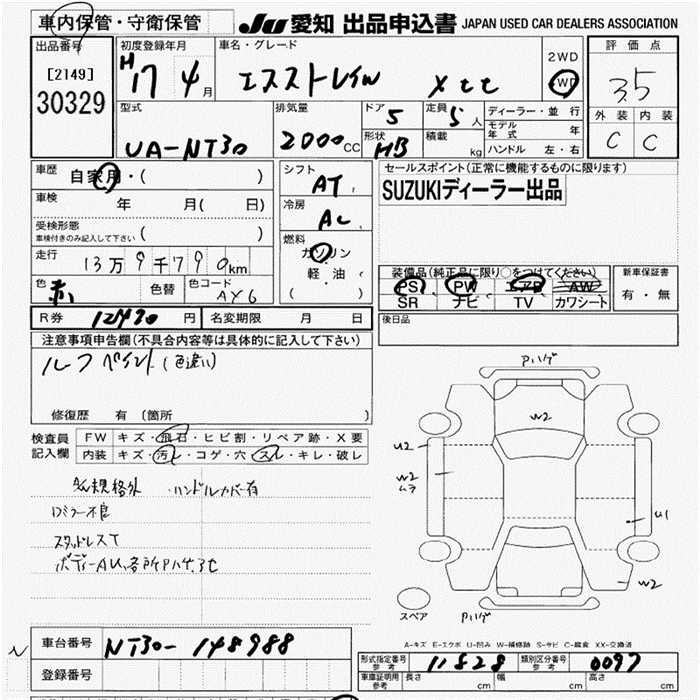 車内保管・守衛保管
JU 愛知 出品申込書 JAPAN USED CAR DEALERS ASSOCIATION
出品番号
[2149]
30329
初度登録年月
H 17 4月
車名・グレード
エクストレイル Xtt
2WD
4WD
評価点
3.5
外装 内装
C C
型式
UA-NT30
排気量
2000CC
ドア 5
形状 HB
定員 5人
積載 kg
ディーラー・並行
モデル年式 年
ハンドル 左・右
車歴
自家用・( )
車検 年 月( 日)
受検形態
車検付きのみ記入して下さい ( )
走行
13万9千790km
色 赤 色替
色コード AY6
R券 12430円 名変期限 月 日
シフト
AT
冷房
AC
燃料
ガソリン
軽・油
( )
セールスポイント(正常に機能するものに限ります)
SUZUKIディーラー出品
装備品(純正品に限り○をつけてください)
PS PW エアB AW
SR ナビ TV カワシート
新車保証書
有・無
後日品
注意事項申告欄(不具合内容等は具体的に記入して下さい)
ルーフペイント(色違い)
修復歴 有 (箇所 )
検査員記入欄
FW キズ・飛石・ヒビ割・リペア跡・X要
内装 キズ・汚レ・コゲ・穴・スレ・キレ・破レ
規格外 ハンドルカバー有
ロミラー不良
スタッドレスT
ボディーAU、各所Pハゲ、
Pハゲ
W2
U2
W2
ムラ
U1
W2
スペア
Pハゲ
A-キズ E-エクボ U-凹み W-補修跡 S-サビ C-腐食 XX-交換済
車台番号 NT30-148988
登録番号
形式指定番号 参考 11828
類別区分番号 参考 0097
車庫証明用 参考 長さ cm 幅 cm 高さ cm